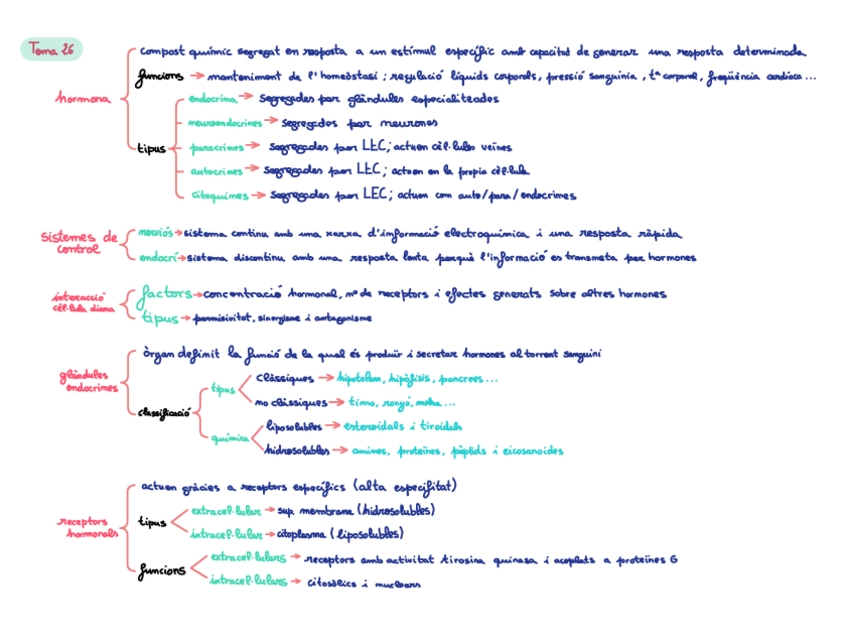 Tema 26
hormona
compost químic segregat en resposta a un estímul específic amb capacitat de generar una resposta determinada
funcions → manteniment de l'homeòstasi ; regulació líquids corporals, pressió sanguínia, tª corporal, freqüència cardíaca...
tipus
endocrina → segregades per glàndules especialitzades
neuroendocrines → segregades per neurones
paracrines → segregades per LEC; actuen cèl·lules veïnes
autocrines → segregades per LEC; actuen en la propia cèl·lula
citoquines → segregades per LEC; actuen com auto/para/endocrines
sistemes de control
nerviós → sistema continu amb una xarxa d'informació electroquímica i una resposta ràpida
endocrí → sistema discontinu amb una resposta lenta perquè l'informació es transmeta per hormones
interacció cèl·lula diana
factors → concentració hormonal, nº de receptors i efectes generats sobre altres hormones
tipus → permisivitat, sinergisme i antagonisme
glàndules endocrines
òrgan definit la funció de la qual és produïr i secretar hormones al torrent sanguini
classificació
tipus
clàssiques → hipotàlem, hipòfisis, pancrees...
no clàssiques → timo, ronyó, melsa...
química
liposolubles → esteroidals i tiroidals
hidrosolubles → amines, proteïnes, pèptids i eicosanoides
receptors hormonals
actuen gràcies a receptors específics (alta especifitat)
tipus
extracel·lular → sup. membrana (hidrosolubles)
intracel·lular → citoplasma (liposolubles)
funcions
extracel·lulars → receptors amb activitat tirosina quinasa i acoplats a proteïnes G
intracel·lulars → citosòlics i nuclears